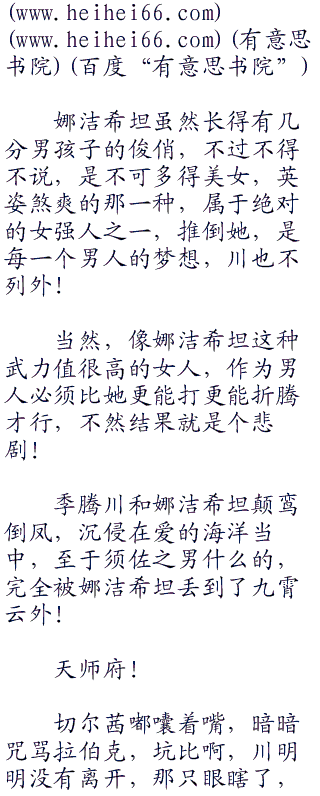 (www.heihei66.com)
(www.heihei66.com)(有意思
书院)(百度“有意思书院”)
娜洁希坦虽然长得有几
分男孩子的俊俏，不过不得
不说，是不可多得美女，英
姿煞爽的那一种，属于绝对
的女强人之一，推倒她，是
每一个男人的梦想，川也不
列外！
当然，像娜洁希坦这种
武力值很高的女人，作为男
人必须比她更能打更能折腾
才行，不然结果就是个悲
剧！
季腾川和娜洁希坦颠鸾
倒凤，沉侵在爱的海洋当
中，至于须佐之男什么的，
完全被娜洁希坦丢到了九霄
云外！
天师府！
切尔茜嘟囔着嘴，暗暗
咒骂拉伯克，坑比啊，川明
明没有离开，那只眼瞎了，